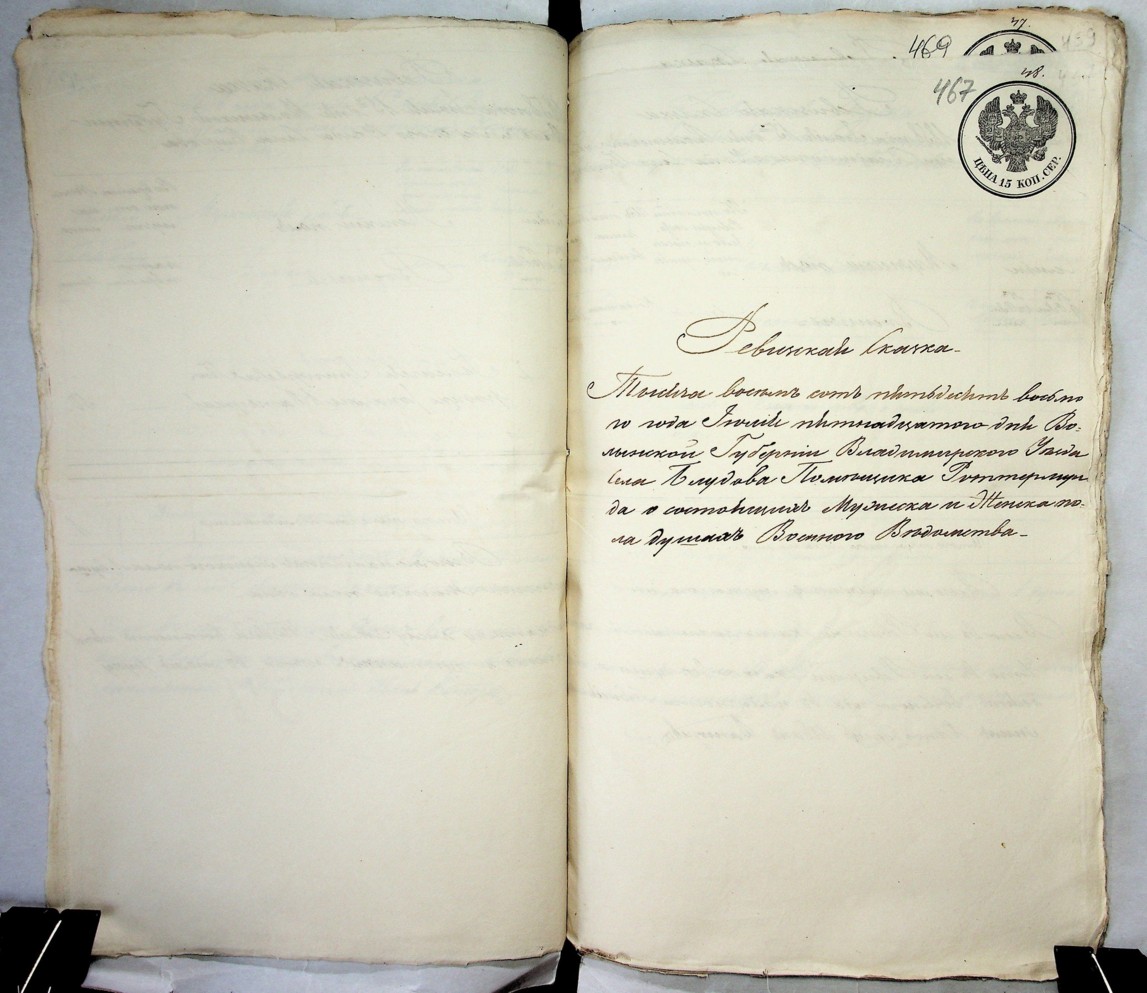 47.
469
48.
467
ЦѢНА 15 КОП. СЕР.
Ревизская Сказка
Тысяча восемь сотъ пятьдесятъ восьмо
го года Іюля пятнадцатого дня Во=
лынской Губерніи Владимирского Уезда
Села Блудова Помѣщика Роттермун
да о состоящихъ Мужеска и Женска по=
ла душахъ Военного Вѣдомства